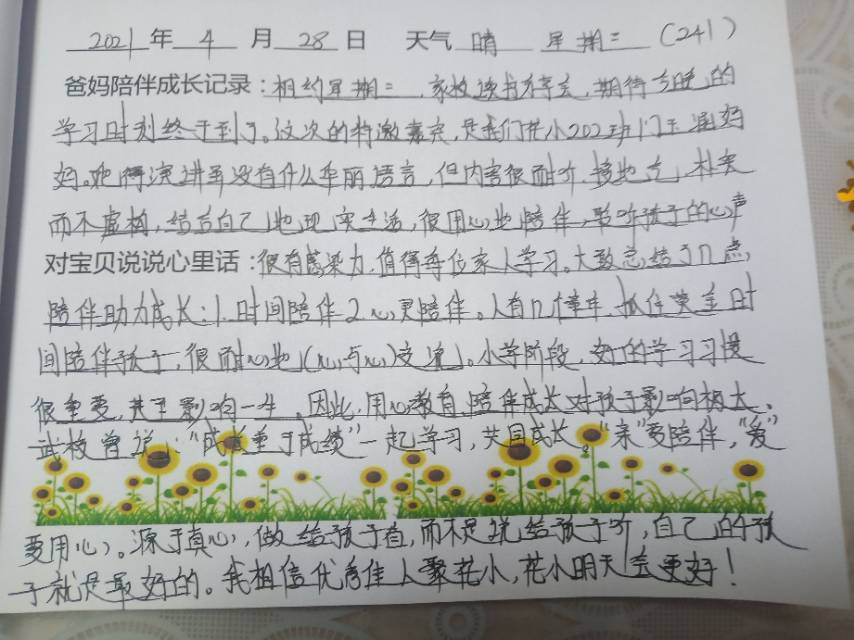 2021年4月28日 天气 晴 星期三 (241)
爸妈陪伴成长记录:相约星期二,家校读书分享会,期待今晚的
学习时刻终于到了。这次的特邀嘉宾,是我们花小202班 妈
妈。她 演讲并没有什么华丽语言,但内容很耐听,接地气,朴实
而不虚构,结合自己地现实生活,很用心地陪伴,聆听孩子的心声
对宝贝说说心里话:很有感染力,值得每位家人学习。大致总结了几点,
陪伴助力成长:1.时间陪伴2心灵陪伴。人有几 ,抓住黄金时
间陪伴孩子,很耐心地(心与心)交流。小学阶段,好的学习习惯
很重要,甚至影响一生。因此,用心教育,陪伴成长对孩子影响极大。
武校曾说:“成长重于成绩”一起学习,共同成长。“亲”要陪伴,“爱”
要用心。源于真心,做给孩子看,而不是说给孩子听,自己的孩
子就是最好的。我相信优秀佳人聚花小,花小明天会更好!